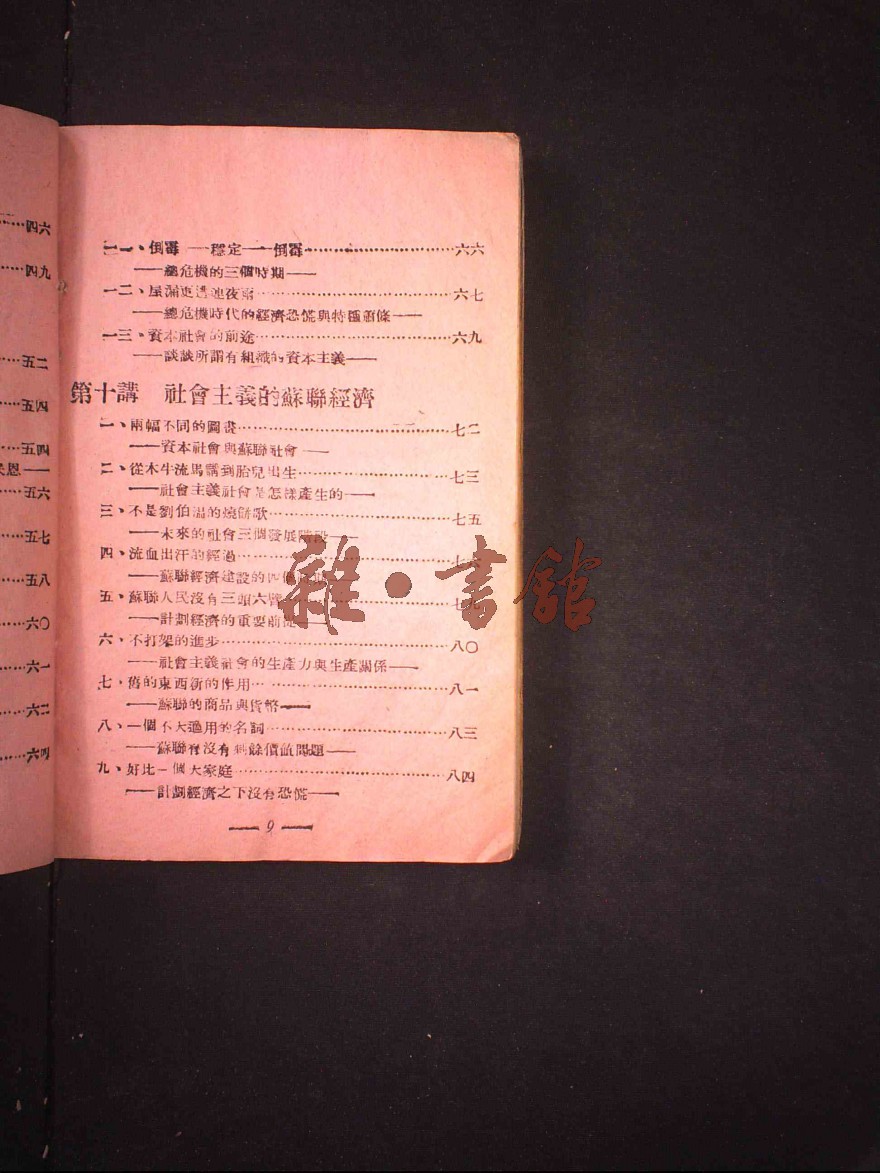 四六
四九
五二
五四
五四
恩——
五六
五七
五八
六〇
六一
六二
六四
一一、倒霉——穩定——倒霉……六六
——總危機的三個時期——
一二、屋漏更遭連夜雨……六七
——總危機時代的經濟恐慌與特種蕭條——
一三、資本社會的前途……六九
——談談所謂有組織的資本主義——
第十講 社會主義的蘇聯經濟
一、兩幅不同的圖畫……七二
——資本社會與蘇聯社會——
二、從木牛流馬講到胎兒出生……七三
——社會主義社會是怎樣產生的——
三、不是劉伯溫的燒餅歌……七五
——未來的社會三個發展階段——
四、流血出汗的經過……七
——蘇聯經濟建設的四個
五、蘇聯人民沒有三頭六臂……七
——計劃經濟的重要前提——
六、不打架的進步……八〇
——社會主義社會的生產力與生產關係——
七、舊的東西新的作用……八一
——蘇聯的商品與貨幣——
八、一個不大適用的名詞……八三
——蘇聯有沒有剩餘價值問題——
九、好比一個大家庭……八四
——計劃經濟之下沒有恐慌——
—— 9 ——
雜·書館